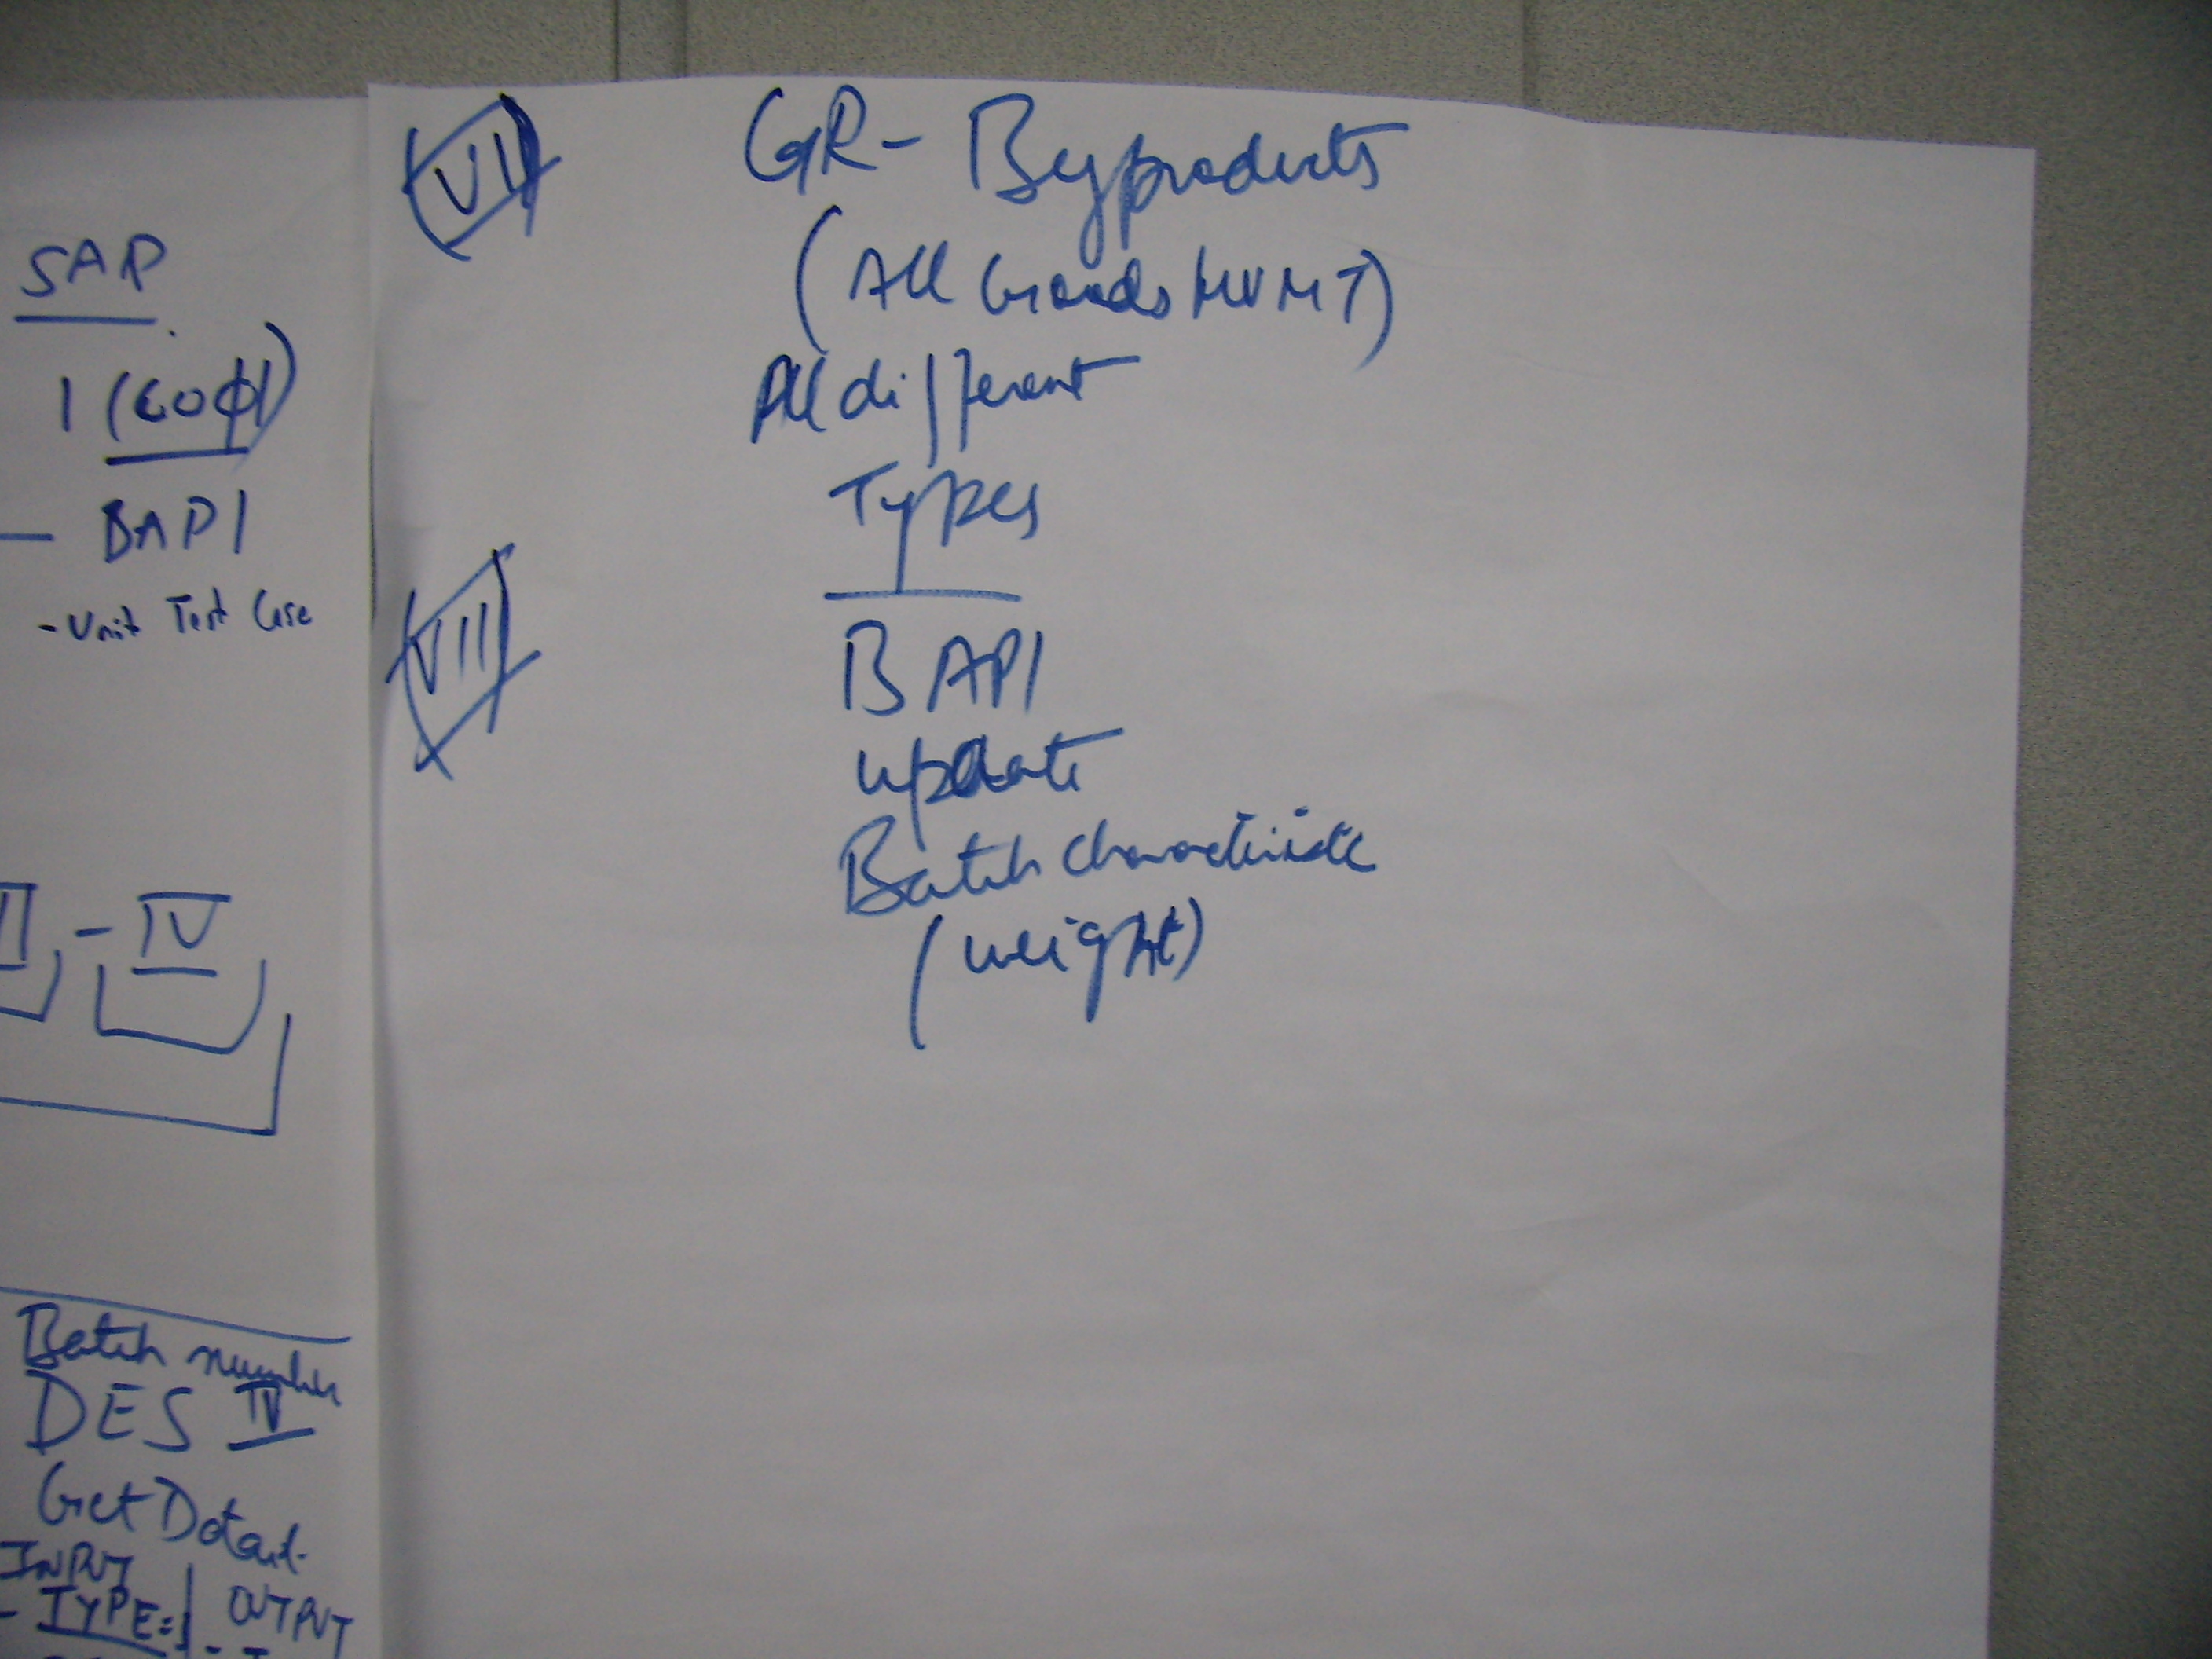 SAP
1 (CO01)
- BAPI
- Unit Test Case
- IV
Batch number
DES IV
Get Detail
INPUT
- TYPE=
OUTPUT
VI
GR- Byproducts
(All Goods MVMT)
All different
Types
VII
BAPI
update
Batch characteristic
(weight)